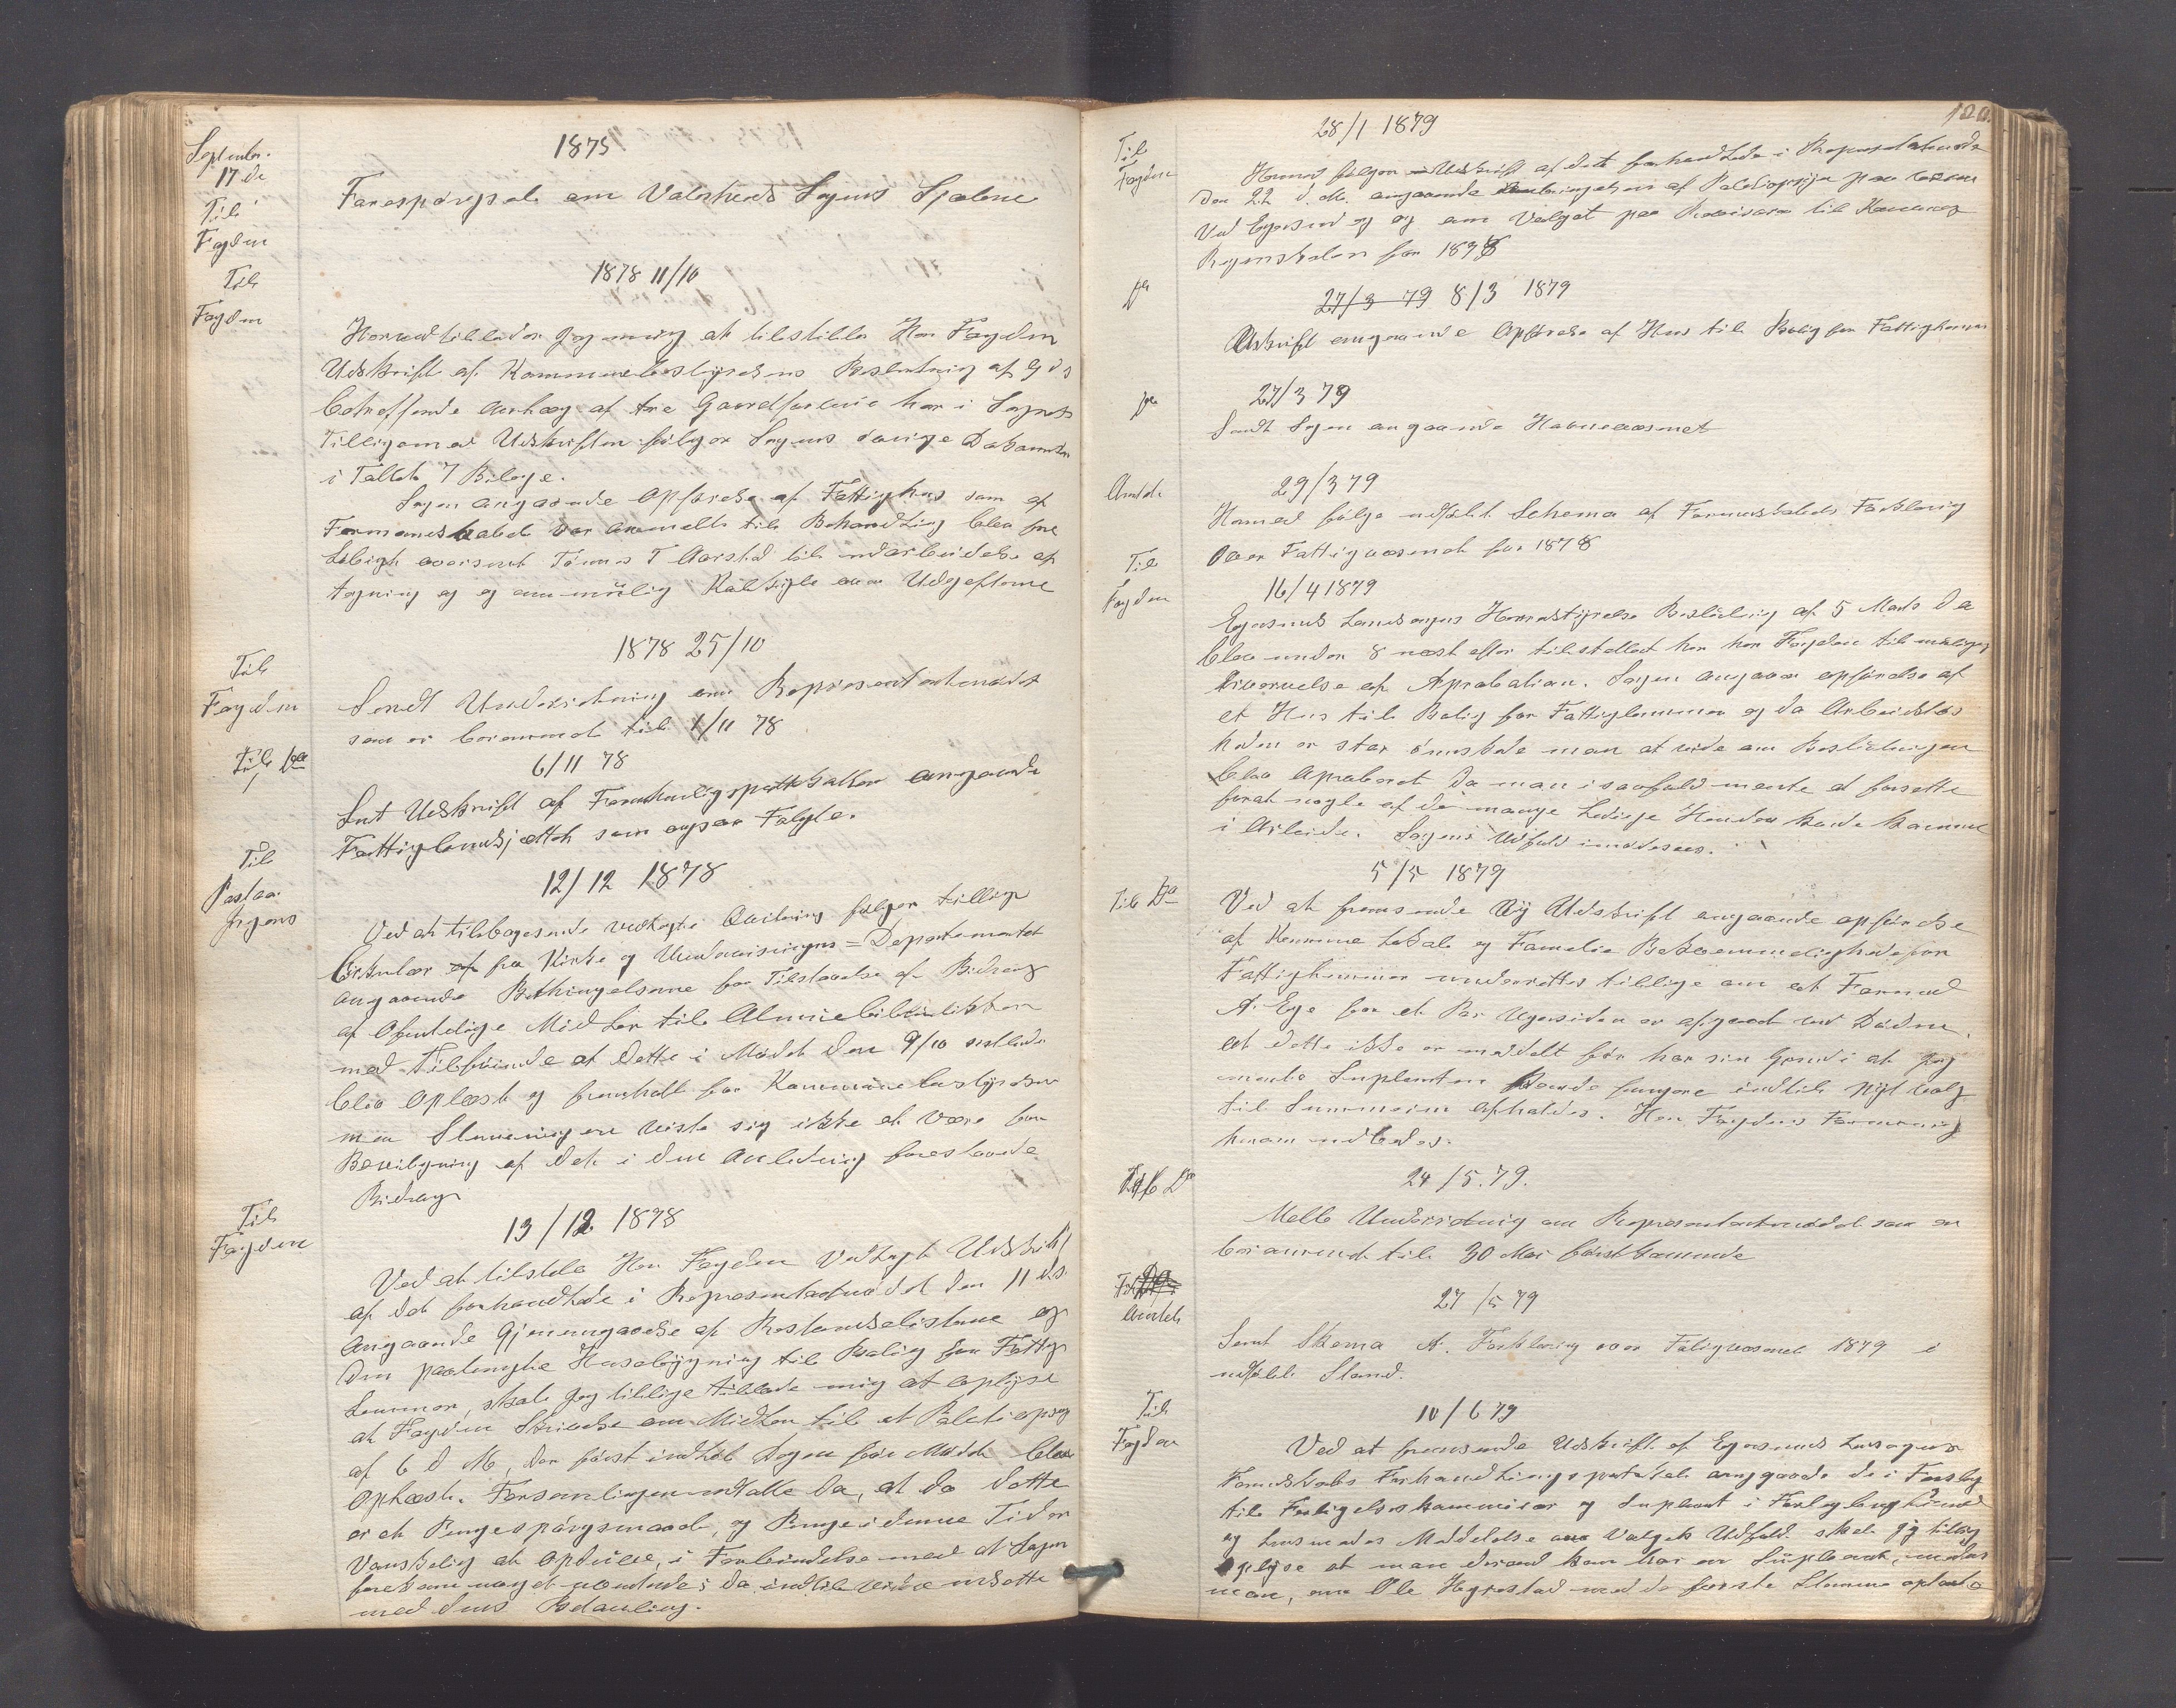 1875
September.
17de
Til
Fogden
Forespörgsel om Valaheds Sogns Sjælene
1878 11/10
Til
Fogden
Herved tillader Jeg mig at tilstille Her Fogden
Udskrift af Kommunebestyrelsens Beslutning af 9 ds
betreffende Anlæg af tre Gaardfarveie her i Sognet
Tilligemed Udskriften fölger Sagens övrige Dokumenter
i Tallet 7 Bilage.
Sagen angaaende Opförelse af Fattighus som af
Formandskabet var anmeldt til Behandling blev fore
löbigt oversent Tönnes T Aarstad til udarbeidelse af
tegning og og om mülig Kalkyle over Udgifterne
1878 25/10
Til
Fogden
Sendt Underretning om Representantmödet
som er berammet til 1/11 78
6/11 78
Til Do
Sent Udskrift af Forhandligsprottokallen angaaende
Fattiglemsjættet som ogsaa Fulgte.
12/12 1878
Til
Pastor
Jrgens
Ved at tilbagesende vedlagte Qvitering følger tillige
Cirkulær fra Kirke og Undervisnings=Departementet
angaaende Bethingelserne for Tilstaaelse af Bidrag
af Ofentlige Midler til Almuebibliotikker
med Tilföiende at dette i Mödet den 9/10 sistleden
blev Oplæst og fremholt for Kommünebestyrelsen
men Stemningen viste sig ikke at være for
Bevilgning af det i den Anledning forestaaende
Bidrag
13/12 1878
Til
Fogden
Ved at tilstille Her Fogden Vedlagte Udskrift
af det forhandlede i Representantmödet den 11 ds.
Angaaende Gjenemgaaelse af Restanselisterne og
den paatænkte Husebygning til Bolig for Fattig
Lemmer, skal Jeg tillige tillade mig at oplyse
at Fogden Skrivelse om Midler til et Politiopsyg
af 6 d M, der först indløb Dagen för Mödet blev
Oplæst. Forsamlingen udtalte da, at da dette
er et Pengespörgsmaal, og Penge i denne Tid er
Vanskelig at Opdrive, i Forbindelse med at Sagen
forekom noget uventende; da indtil videre udsette
med dens Bedømling.
120.
28/1 1879
Til
Fogden
Hermed fölger Udskrift af det forhandlede i Representantmöde
den 22 d. M. angaaende af Politiopsyn paa
Ved Egersund og og om Valget paa Revisorer til Kommune
Regenskaben for 1878
Do
27/3 79 8/3 1879
Udskrift angaaende Opförelse af Hus til Bolig for Fattiglemmer
Do
27/3 79
Sendt Sagen angaaende Havnevæsenet
29/3 79
Amtet
Hermed fölge udfyldt Schema af Formandskabets Forklaring
Over Fattigvæsenet for 1878
16/4 1879
Til
Fogden
Egersunds Landsogns Herredstyrelse Beslütning af 5 Marts d a
blev under 8 næst efter tilstellet her her Fogden til
Ervervelse af Aprobation. Sagen angaar opförelse af
et Hus til Bolig for Fattiglemmer og da Arbeidslös
heden er stor önskede man at vide om Beslütningen
blev Aproberet da man i saafald mente at forsette
forat nogle af de mange Ledige Hender kunde komme
i Arbeide. Sagens Udfald imödesees.
5/5 1879
Til Do
Ved at fremsende Ny Udskrift angaaende opförelse
af Komune Lokale og Familie Bekvemmeligheds for
Fattiglemmer underrettes tillige om at Formand
A. Ege for et Par Uger siden er afgaaet ved Döden.
At dette ikke er meddelt för har sin Grund i at Jeg
mente Suplenten kunde fungere indtil Nyt valg
til Summeren Afholdes. Her Fogdens Formening
herom udbedes.
24/5.79.
Til Do
Melt Underretning om Representantmödet som er
berammet til 30 Mai førstkommende
27/5 79
Til
Amtet
Sent Skema A. Forklaring over Fatigvæsenet 1879 i
udfyldt Stand.
10/6 79
Til
Fogden
Ved at fremsende Udskrift af Egersunds Lansogns
Formdskabs Forhandlingsprotokol angaaende de i Forslag
til Forligelseskommisær og Suplient i
og Meddelelse om Valgets Udfald skal Jeg tillig
Oplyse at man derved har en Süpleant, nemlig
man, om Ole Hegrestad med de færste Stemme optaste